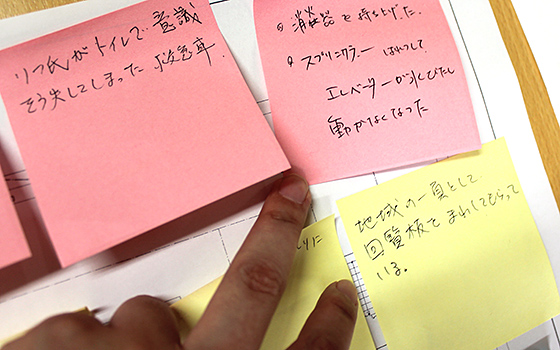 氏がトイレで意識
そう失してしまった 救急車.
消火器を持ち上げた.
スプリンクラー はれつして
エレベーターが水びたし
動かなくなった
地域の一員として
回覧板をまわしてもらって
いる。
りに